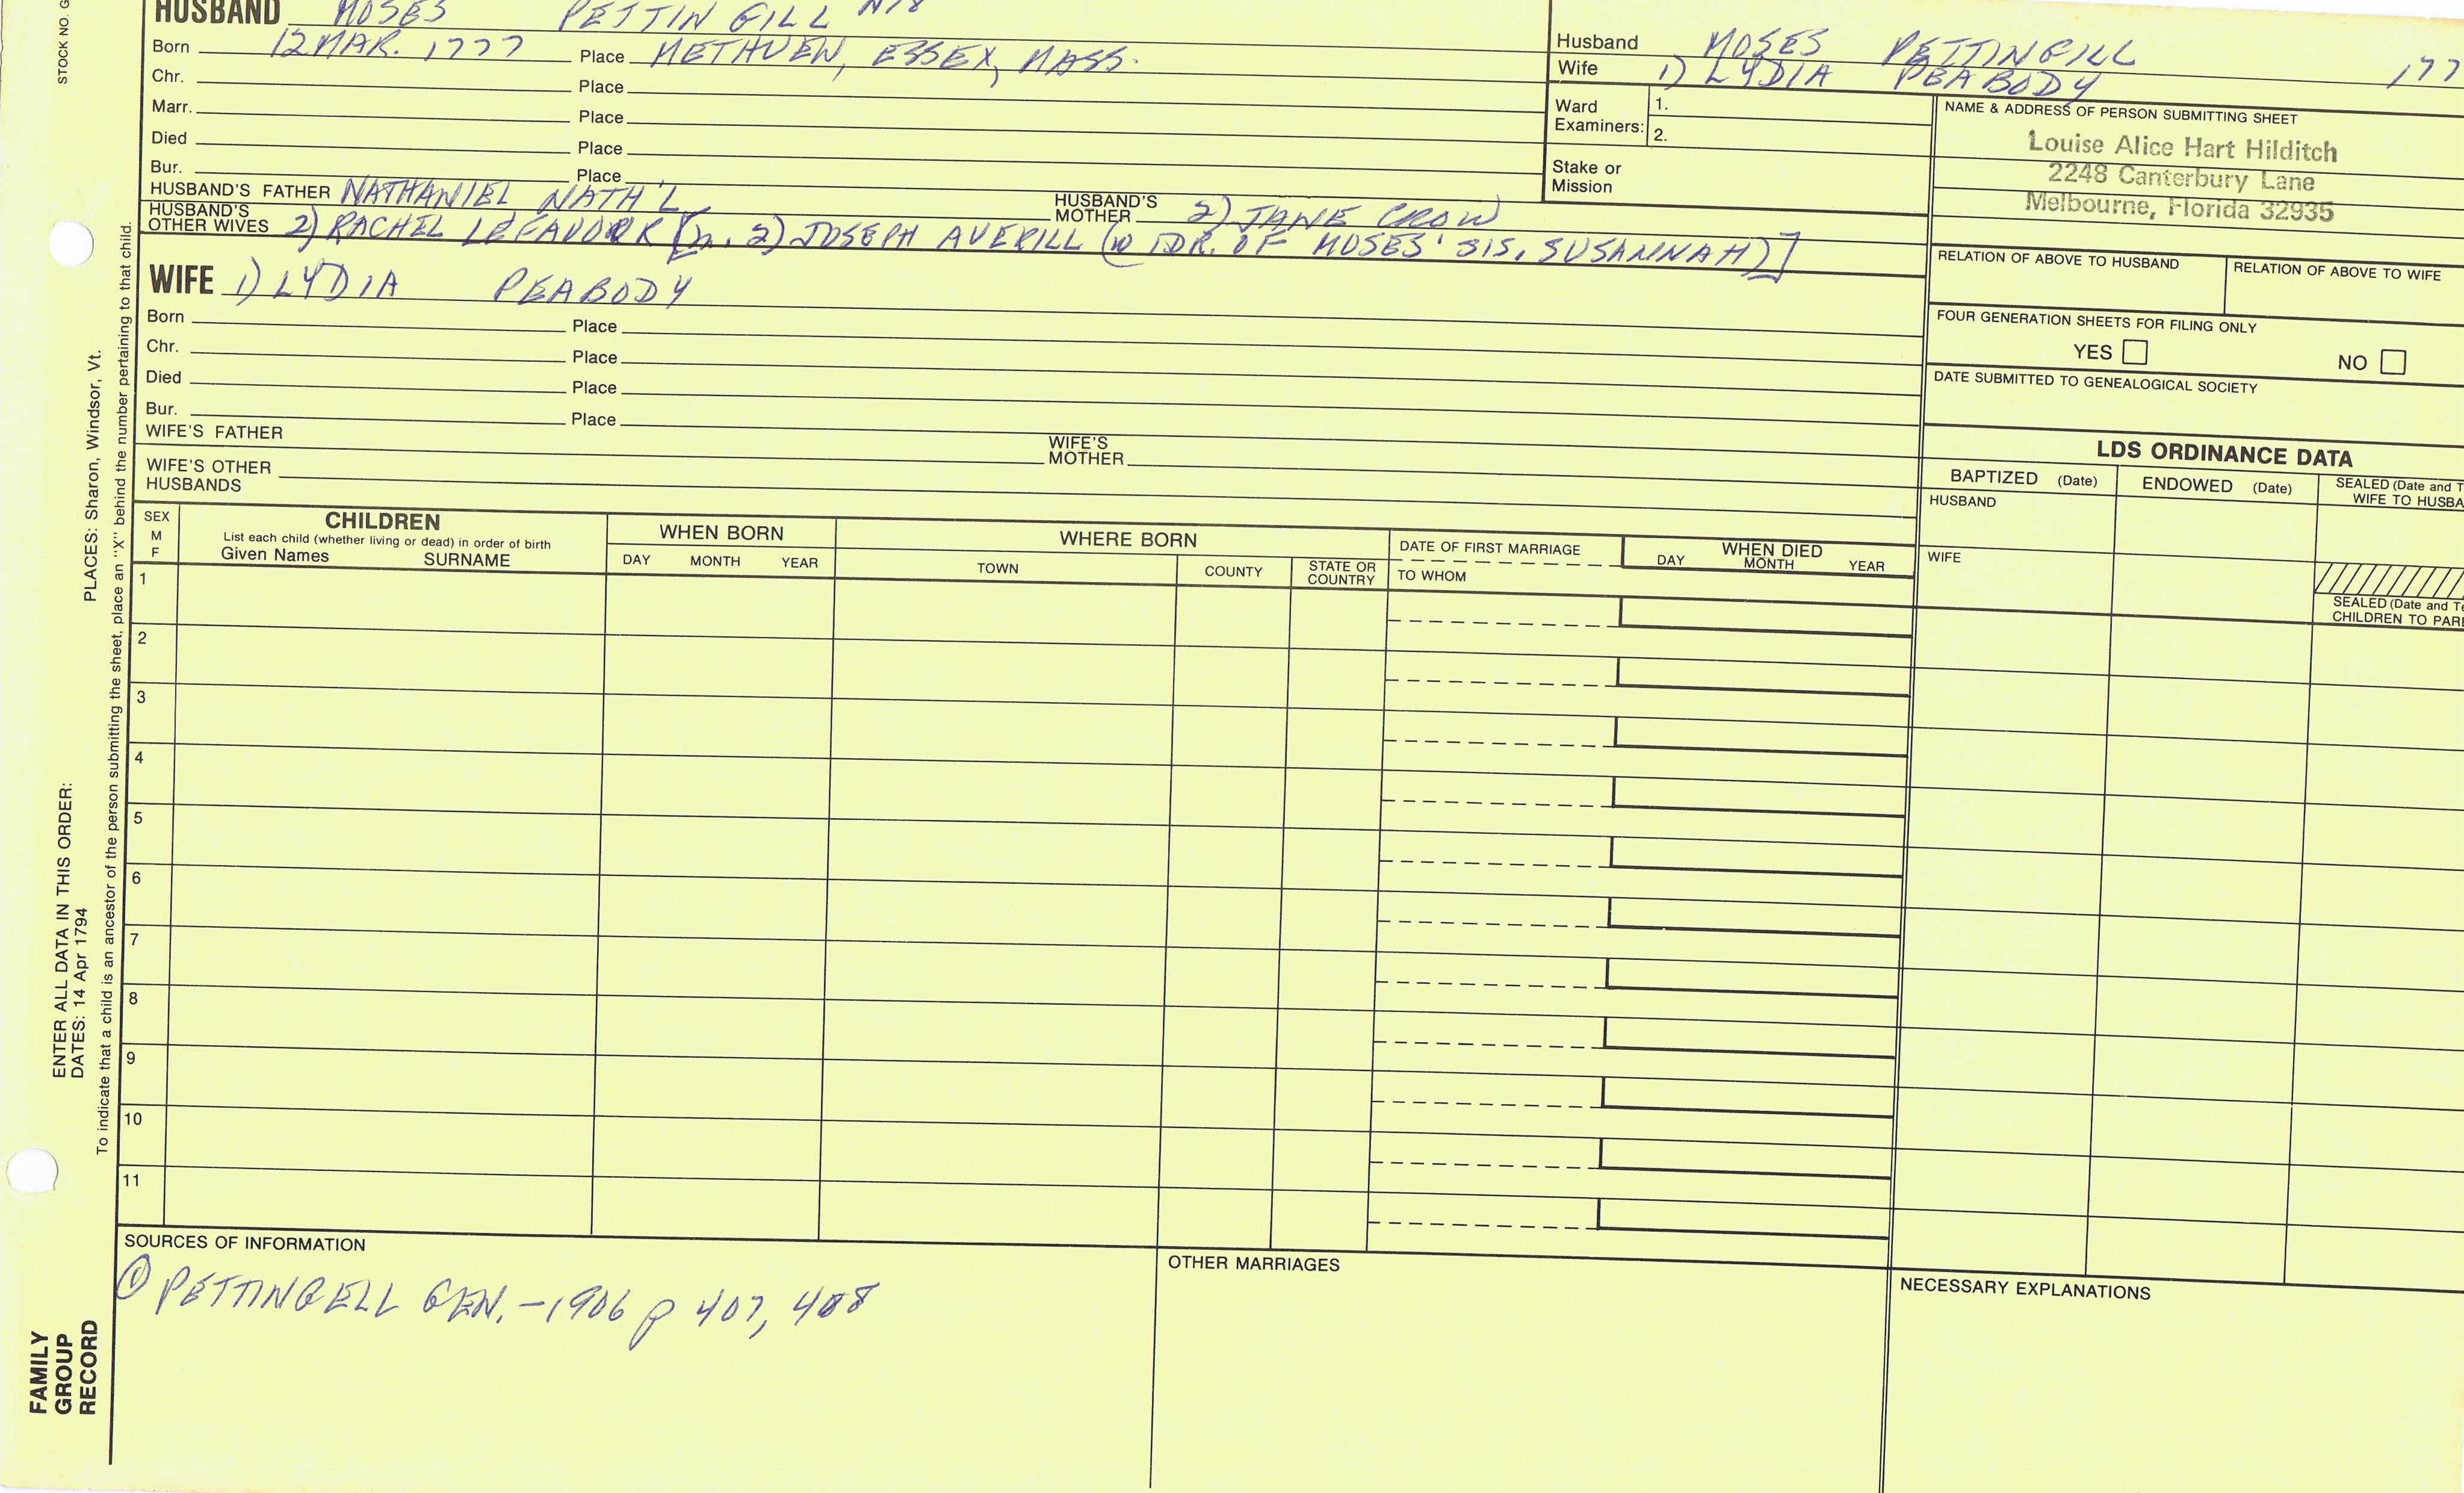 STOCK NO. G
HUSBAND MOSES PETTINGILL
Born 12 MAR. 1777 Place METHUEN, ESSEX, MASS.
Chr. Place
Marr. Place
Died Place
Bur. Place
HUSBAND'S FATHER NATHANIEL NATH'L HUSBAND'S MOTHER 2) JANE CROW
HUSBAND'S OTHER WIVES 2) RACHEL LEFAVOR [m. 2) JOSEPH AVERILL (WIDR. OF MOSES' SIS, SUSANNAH)]
WIFE 1) LYDIA PEABODY
Born Place
Chr. Place
Died Place
Bur. Place
WIFE'S FATHER WIFE'S MOTHER
WIFE'S OTHER HUSBANDS
Husband MOSES PETTINGILL 177
Wife 1) LYDIA PEABODY
Ward Examiners: 1.
2.
Stake or Mission
NAME & ADDRESS OF PERSON SUBMITTING SHEET
Louise Alice Hart Hilditch
2248 Canterbury Lane
Melbourne, Florida 32935
RELATION OF ABOVE TO HUSBAND RELATION OF ABOVE TO WIFE
FOUR GENERATION SHEETS FOR FILING ONLY
YES NO
DATE SUBMITTED TO GENEALOGICAL SOCIETY
LDS ORDINANCE DATA
BAPTIZED (Date) ENDOWED (Date) SEALED (Date and T
WIFE TO HUSBA
HUSBAND
WIFE
SEALED (Date and Te
CHILDREN TO PARE
SEX
M
F
CHILDREN
List each child (whether living or dead) in order of birth
Given Names SURNAME
WHEN BORN
DAY MONTH YEAR
WHERE BORN
TOWN COUNTY STATE OR COUNTRY
DATE OF FIRST MARRIAGE
TO WHOM
WHEN DIED
DAY MONTH YEAR
1
2
3
4
5
6
7
8
9
10
11
SOURCES OF INFORMATION
① PETTINGELL GEN. - 1906 p 407, 408
OTHER MARRIAGES
NECESSARY EXPLANATIONS
PLACES: Sharon, Windsor, Vt.
ENTER ALL DATA IN THIS ORDER:
DATES: 14 Apr 1794
To indicate that a child is an ancestor of the person submitting the sheet, place an "X" behind the number pertaining to that child.
FAMILY
GROUP
RECORD